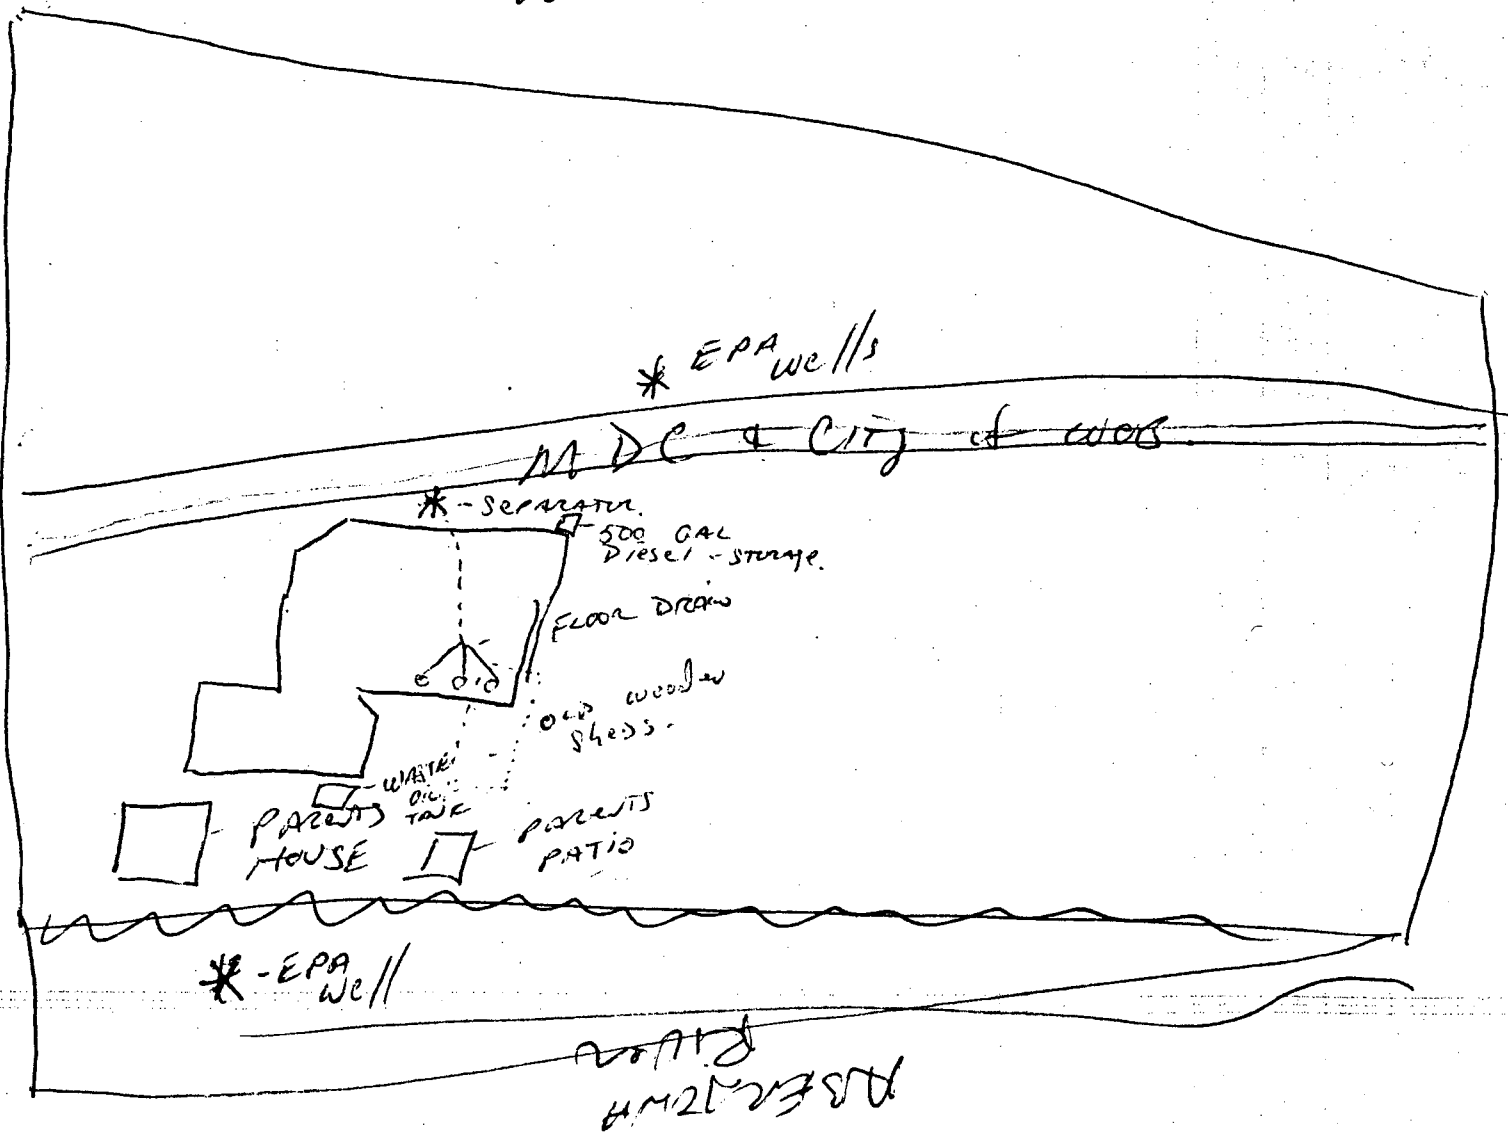 * EPA wells
MDC & City of WOB.
* - SEPARATOR.
500 GAL
Diesel - STORAGE.
FLOOR DRAIN
OLD wooden
sheds.
- WASTE
OIL
TANK
PARENTS
HOUSE
PARENTS
PATIO
* - EPA well
River
ABERJONA